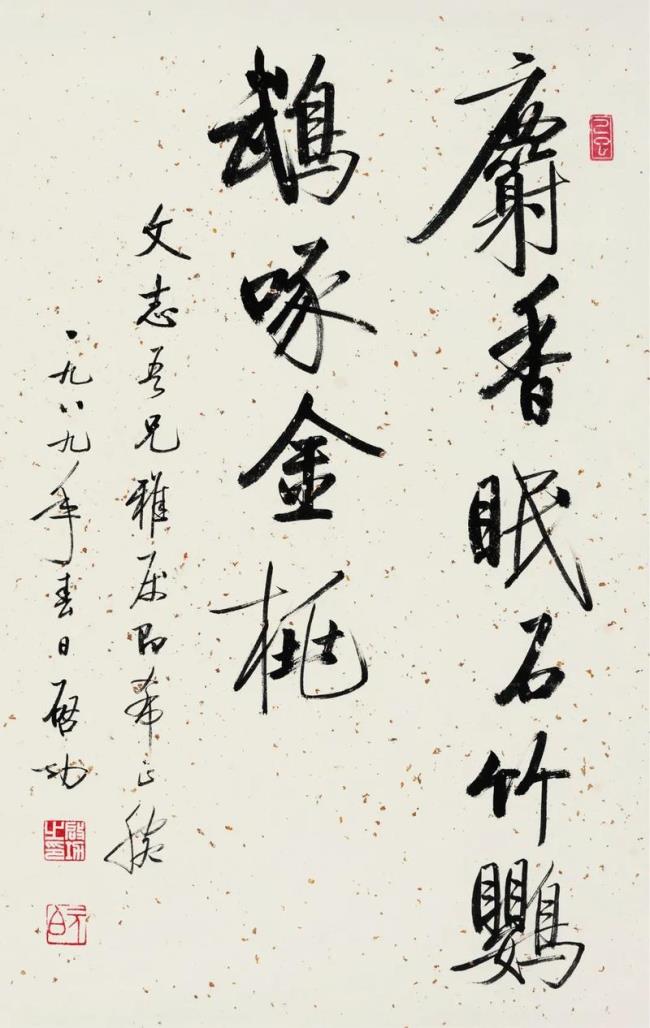 麝香眠石竹鸚
鵡啄金桃
文志吾兄雅属即希正腕
一九八九年春日启功
啟功之印
元白